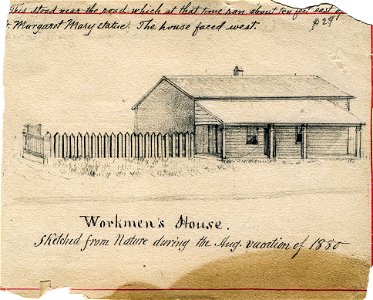 This stood near the road which at that time ran about ten feet east
Margaret Mary statue. The house faced west.
p 291
Workmen's House.
Sketched from Nature during the Aug. vacation of 1880